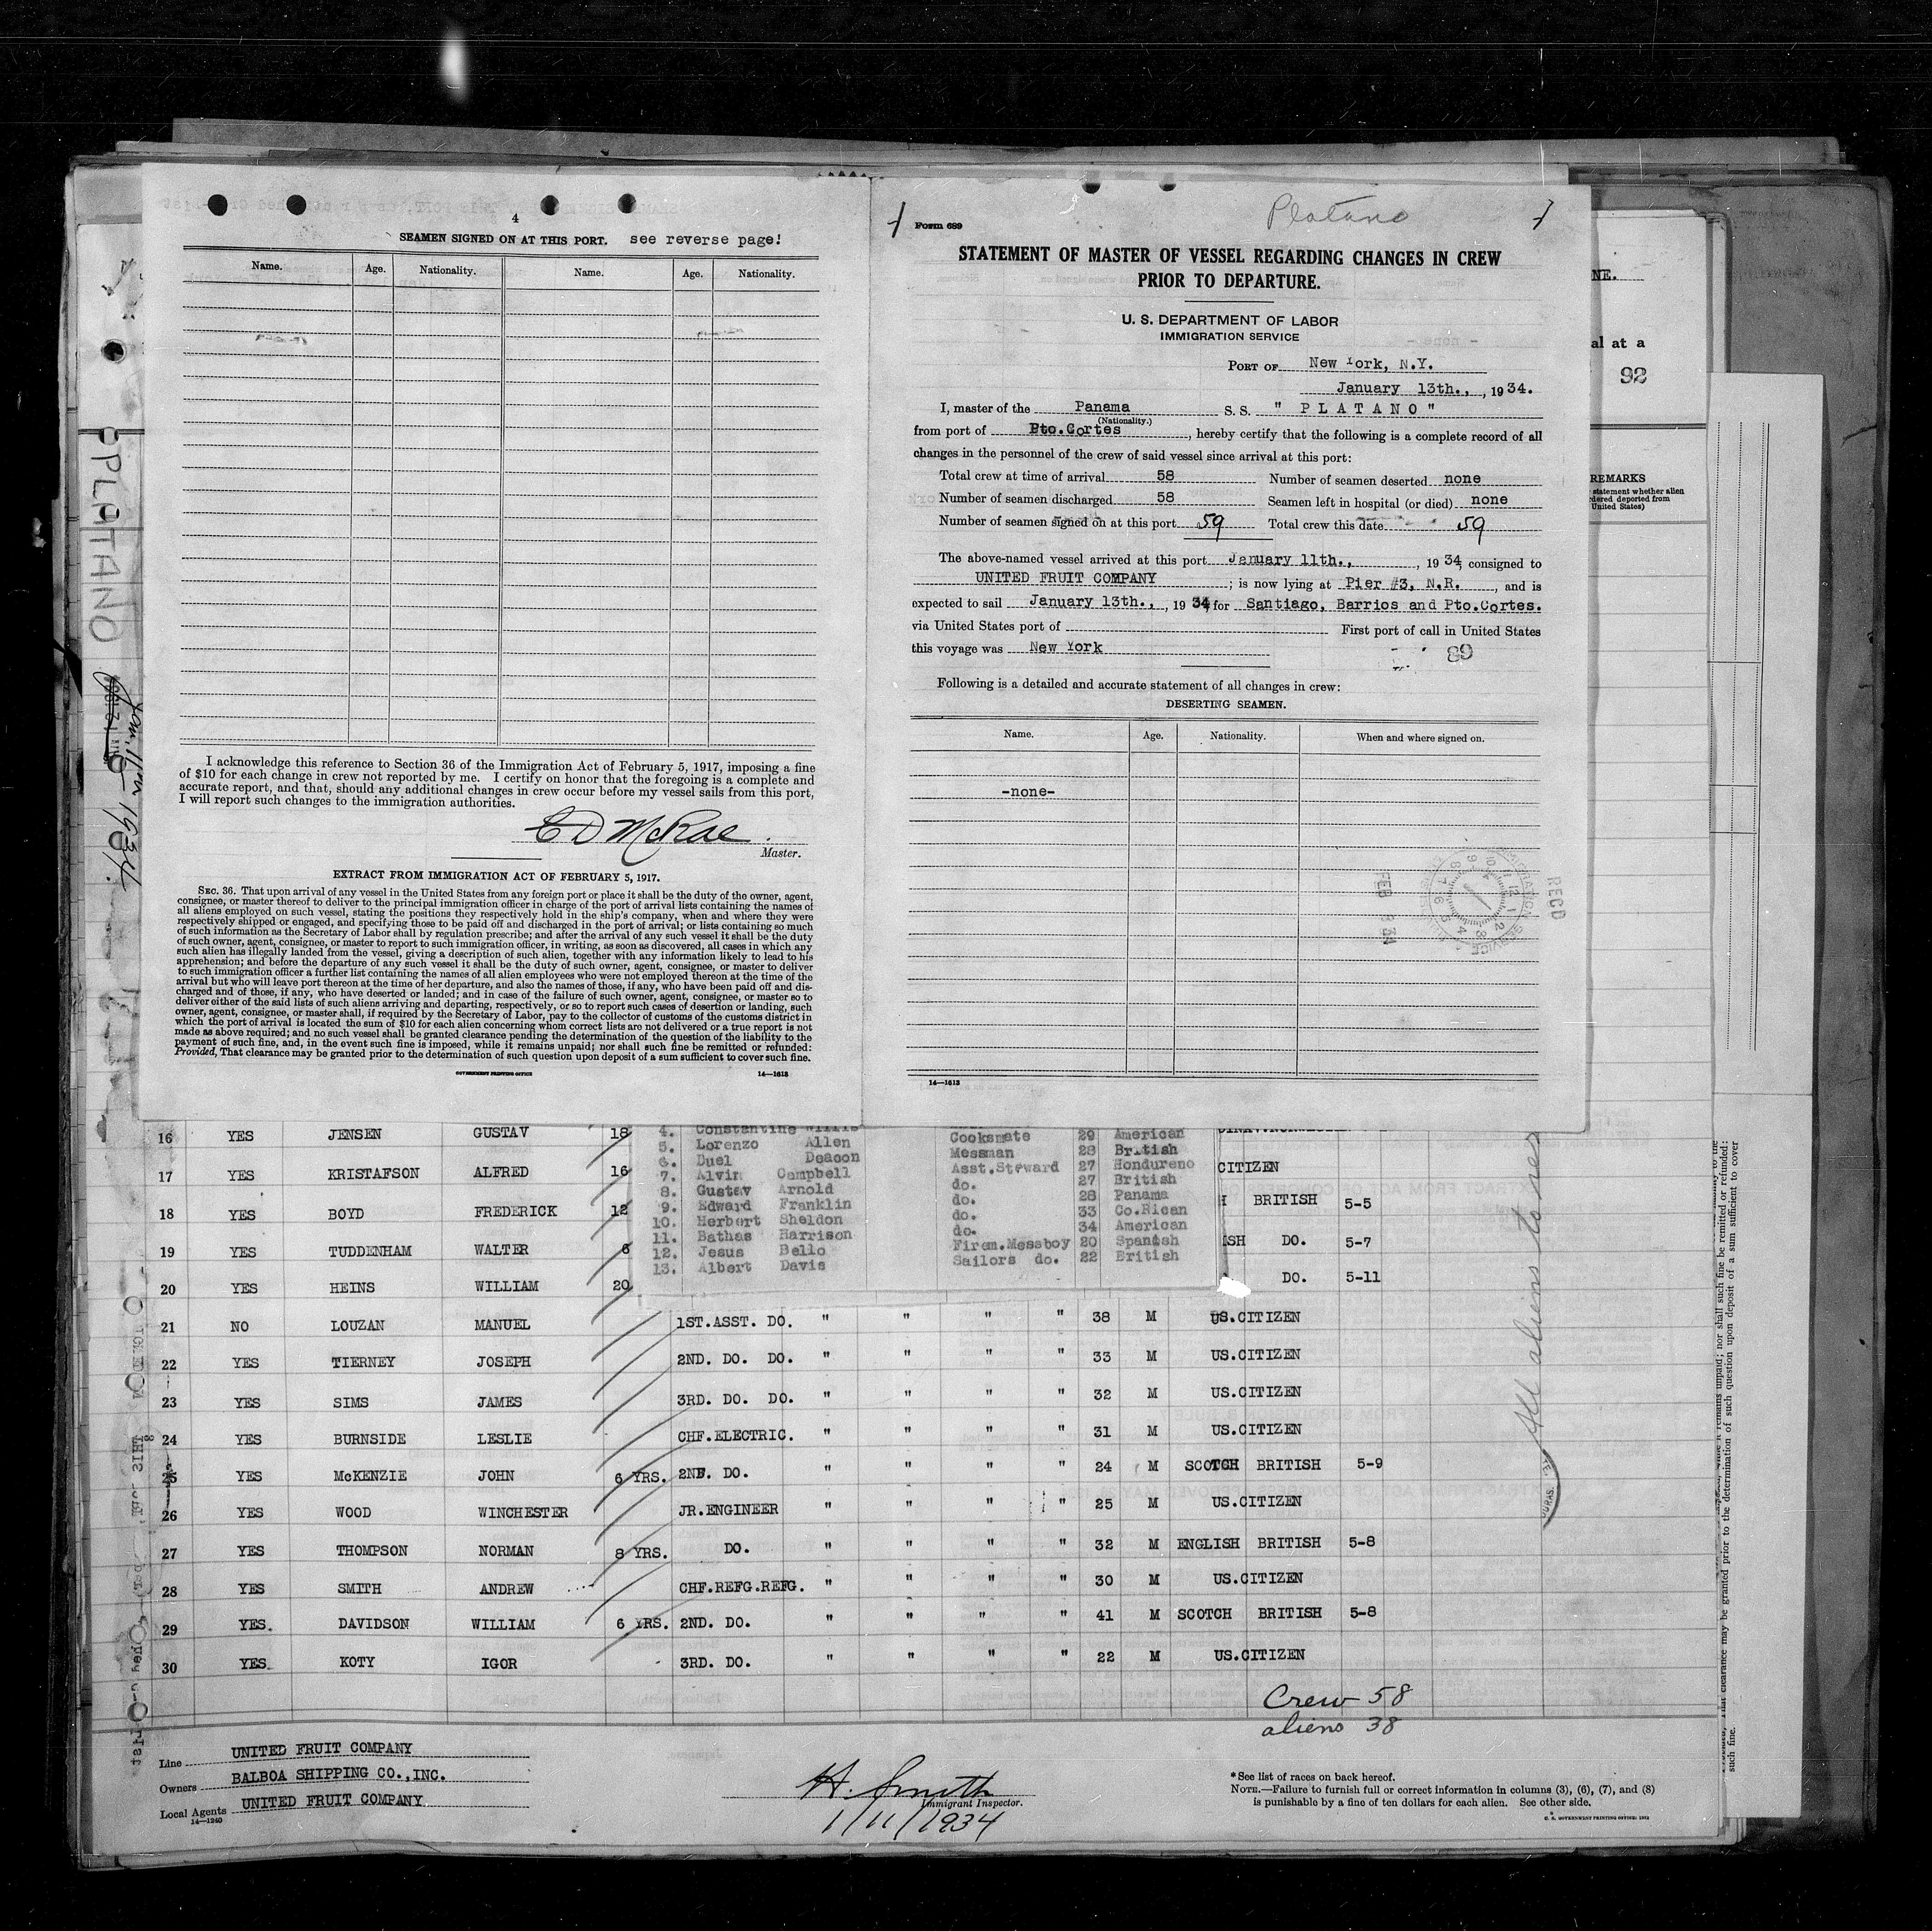 4
SEAMEN SIGNED ON AT THIS PORT. see reverse page!
Name. Age. Nationality. Name. Age. Nationality.
I acknowledge this reference to Section 36 of the Immigration Act of February 5, 1917, imposing a fine
of $10 for each change in crew not reported by me. I certify on honor that the foregoing is a complete and
accurate report, and that, should any additional changes in crew occur before my vessel sails from this port,
I will report such changes to the immigration authorities.
E D McRae
Master.
EXTRACT FROM IMMIGRATION ACT OF FEBRUARY 5, 1917.
SEC. 36. That upon arrival of any vessel in the United States from any foreign port or place it shall be the duty of the owner, agent,
consignee, or master thereof to deliver to the principal immigration officer in charge of the port of arrival lists containing the names of
all aliens employed on such vessel, stating the positions they respectively hold in the ship's company, when and where they were
respectively shipped or engaged, and specifying those to be paid off and discharged in the port of arrival; or lists containing so much
of such information as the Secretary of Labor shall by regulation prescribe; and after the arrival of any such vessel it shall be the duty
of such owner, agent, consignee, or master to report to such immigration officer, in writing, as soon as discovered, all cases in which any
such alien has illegally landed from the vessel, giving a description of such alien, together with any information likely to lead to his
apprehension; and before the departure of any such vessel it shall be the duty of such owner, agent, consignee, or master to deliver
to such immigration officer a further list containing the names of all alien employees who were not employed thereon at the time of the
arrival but who will leave port thereon at the time of her departure, and also the names of those, if any, who have been paid off and dis-
charged and of those, if any, who have deserted or landed; and in case of the failure of such owner, agent, consignee, or master so to
deliver either of the said lists of such aliens arriving and departing, respectively, or so to report such cases of desertion or landing, such
owner, agent, consignee, or master shall, if required by the Secretary of Labor, pay to the collector of customs of the customs district in
which the port of arrival is located the sum of $10 for each alien concerning whom correct lists are not delivered or a true report is not
made as above required; and no such vessel shall be granted clearance pending the determination of the question of the liability to the
payment of such fine, and, in the event such fine is imposed, while it remains unpaid; nor shall such fine be remitted or refunded:
Provided, That clearance may be granted prior to the determination of such question upon deposit of a sum sufficient to cover such fine.
GOVERNMENT PRINTING OFFICE 14—1613
Platano
Form 689
STATEMENT OF MASTER OF VESSEL REGARDING CHANGES IN CREW
PRIOR TO DEPARTURE.
U. S. DEPARTMENT OF LABOR
IMMIGRATION SERVICE
PORT OF New York, N.Y.
January 13th., , 1934.
I, master of the Panama S. S. " P L A T A N O "
(Nationality.)
from port of Pto.Cortes , hereby certify that the following is a complete record of all
changes in the personnel of the crew of said vessel since arrival at this port:
Total crew at time of arrival 58 Number of seamen deserted none
Number of seamen discharged 58 Seamen left in hospital (or died) none
Number of seamen signed on at this port 59 Total crew this date 59
The above-named vessel arrived at this port January 11th., , 1934, consigned to
UNITED FRUIT COMPANY ; is now lying at Pier #3, N.R. , and is
expected to sail January 13th., , 1934, for Santiago, Barrios and Pto.Cortes.
via United States port of First port of call in United States
this voyage was New York
89
Following is a detailed and accurate statement of all changes in crew:
DESERTING SEAMEN.
Name. Age. Nationality. When and where signed on.
-none-
RECD
FEB 3 34
IMMIGRATION SERVICE
14—1613
NE.
al at a
92
REMARKS
statement whether alien
dered deported from
United States)
PLATANO
Jan. 11th 1934
4. Constantine Willis Cooksmate 29 American
5. Lorenzo Allen Messman 28 British
6. Duel Deacon Asst.Steward 27 Hondureno
7. Alvin Campbell do. 27 British
8. Gustav Arnold do. 28 Panama
9. Edward Franklin do. 33 Co.Rican
10. Herbert Sheldon do. 34 American
11. Bathas Harrison Firem.Messboy 20 Spanish
12. Jesus Bello Sailors do. 22 British
13. Albert Davis
16 YES JENSEN GUSTAV 18
17 YES KRISTAFSON ALFRED 16 CITIZEN
18 YES BOYD FREDERICK 12 H BRITISH 5-5
19 YES TUDDENHAM WALTER 6 ISH DO. 5-7
20 YES HEINS WILLIAM 20 DO. 5-11
21 NO LOUZAN MANUEL 1ST.ASST. DO. " " " " 38 M US.CITIZEN
22 YES TIERNEY JOSEPH 2ND. DO. DO. " " " " 33 M US.CITIZEN
23 YES SIMS JAMES 3RD. DO. DO. " " " " 32 M US.CITIZEN
24 YES BURNSIDE LESLIE CHF.ELECTRIC. " " " " 31 M US.CITIZEN
25 YES McKENZIE JOHN 6 YRS. 2ND. DO. " " " " 24 M SCOTCH BRITISH 5-9
26 YES WOOD WINCHESTER JR.ENGINEER " " " " 25 M US.CITIZEN
27 YES THOMPSON NORMAN 8 YRS. DO. " " " " 32 M ENGLISH BRITISH 5-8
28 YES SMITH ANDREW CHF.REFG.REFG. " " " " 30 M US.CITIZEN
29 YES. DAVIDSON WILLIAM 6 YRS. 2ND. DO. " " " " 41 M SCOTCH BRITISH 5-8
30 YES. KOTY IGOR 3RD. DO. " " " " 22 M US.CITIZEN
All aliens to
Crew 58
aliens 38
Line UNITED FRUIT COMPANY
Owners BALBOA SHIPPING CO.,INC.
Local Agents UNITED FRUIT COMPANY
14—1240
H. Smith
Immigrant Inspector.
1/11/1934
*See list of races on back hereof.
NOTE.—Failure to furnish full or correct information in columns (3), (6), (7), and (8)
is punishable by a fine of ten dollars for each alien. See other side.
U. S. GOVERNMENT PRINTING OFFICE: 1932
remains unpaid; nor shall such fine be remitted or refunded:
may be granted prior to the determination of such question upon deposit of a sum sufficient to cover
such fine.